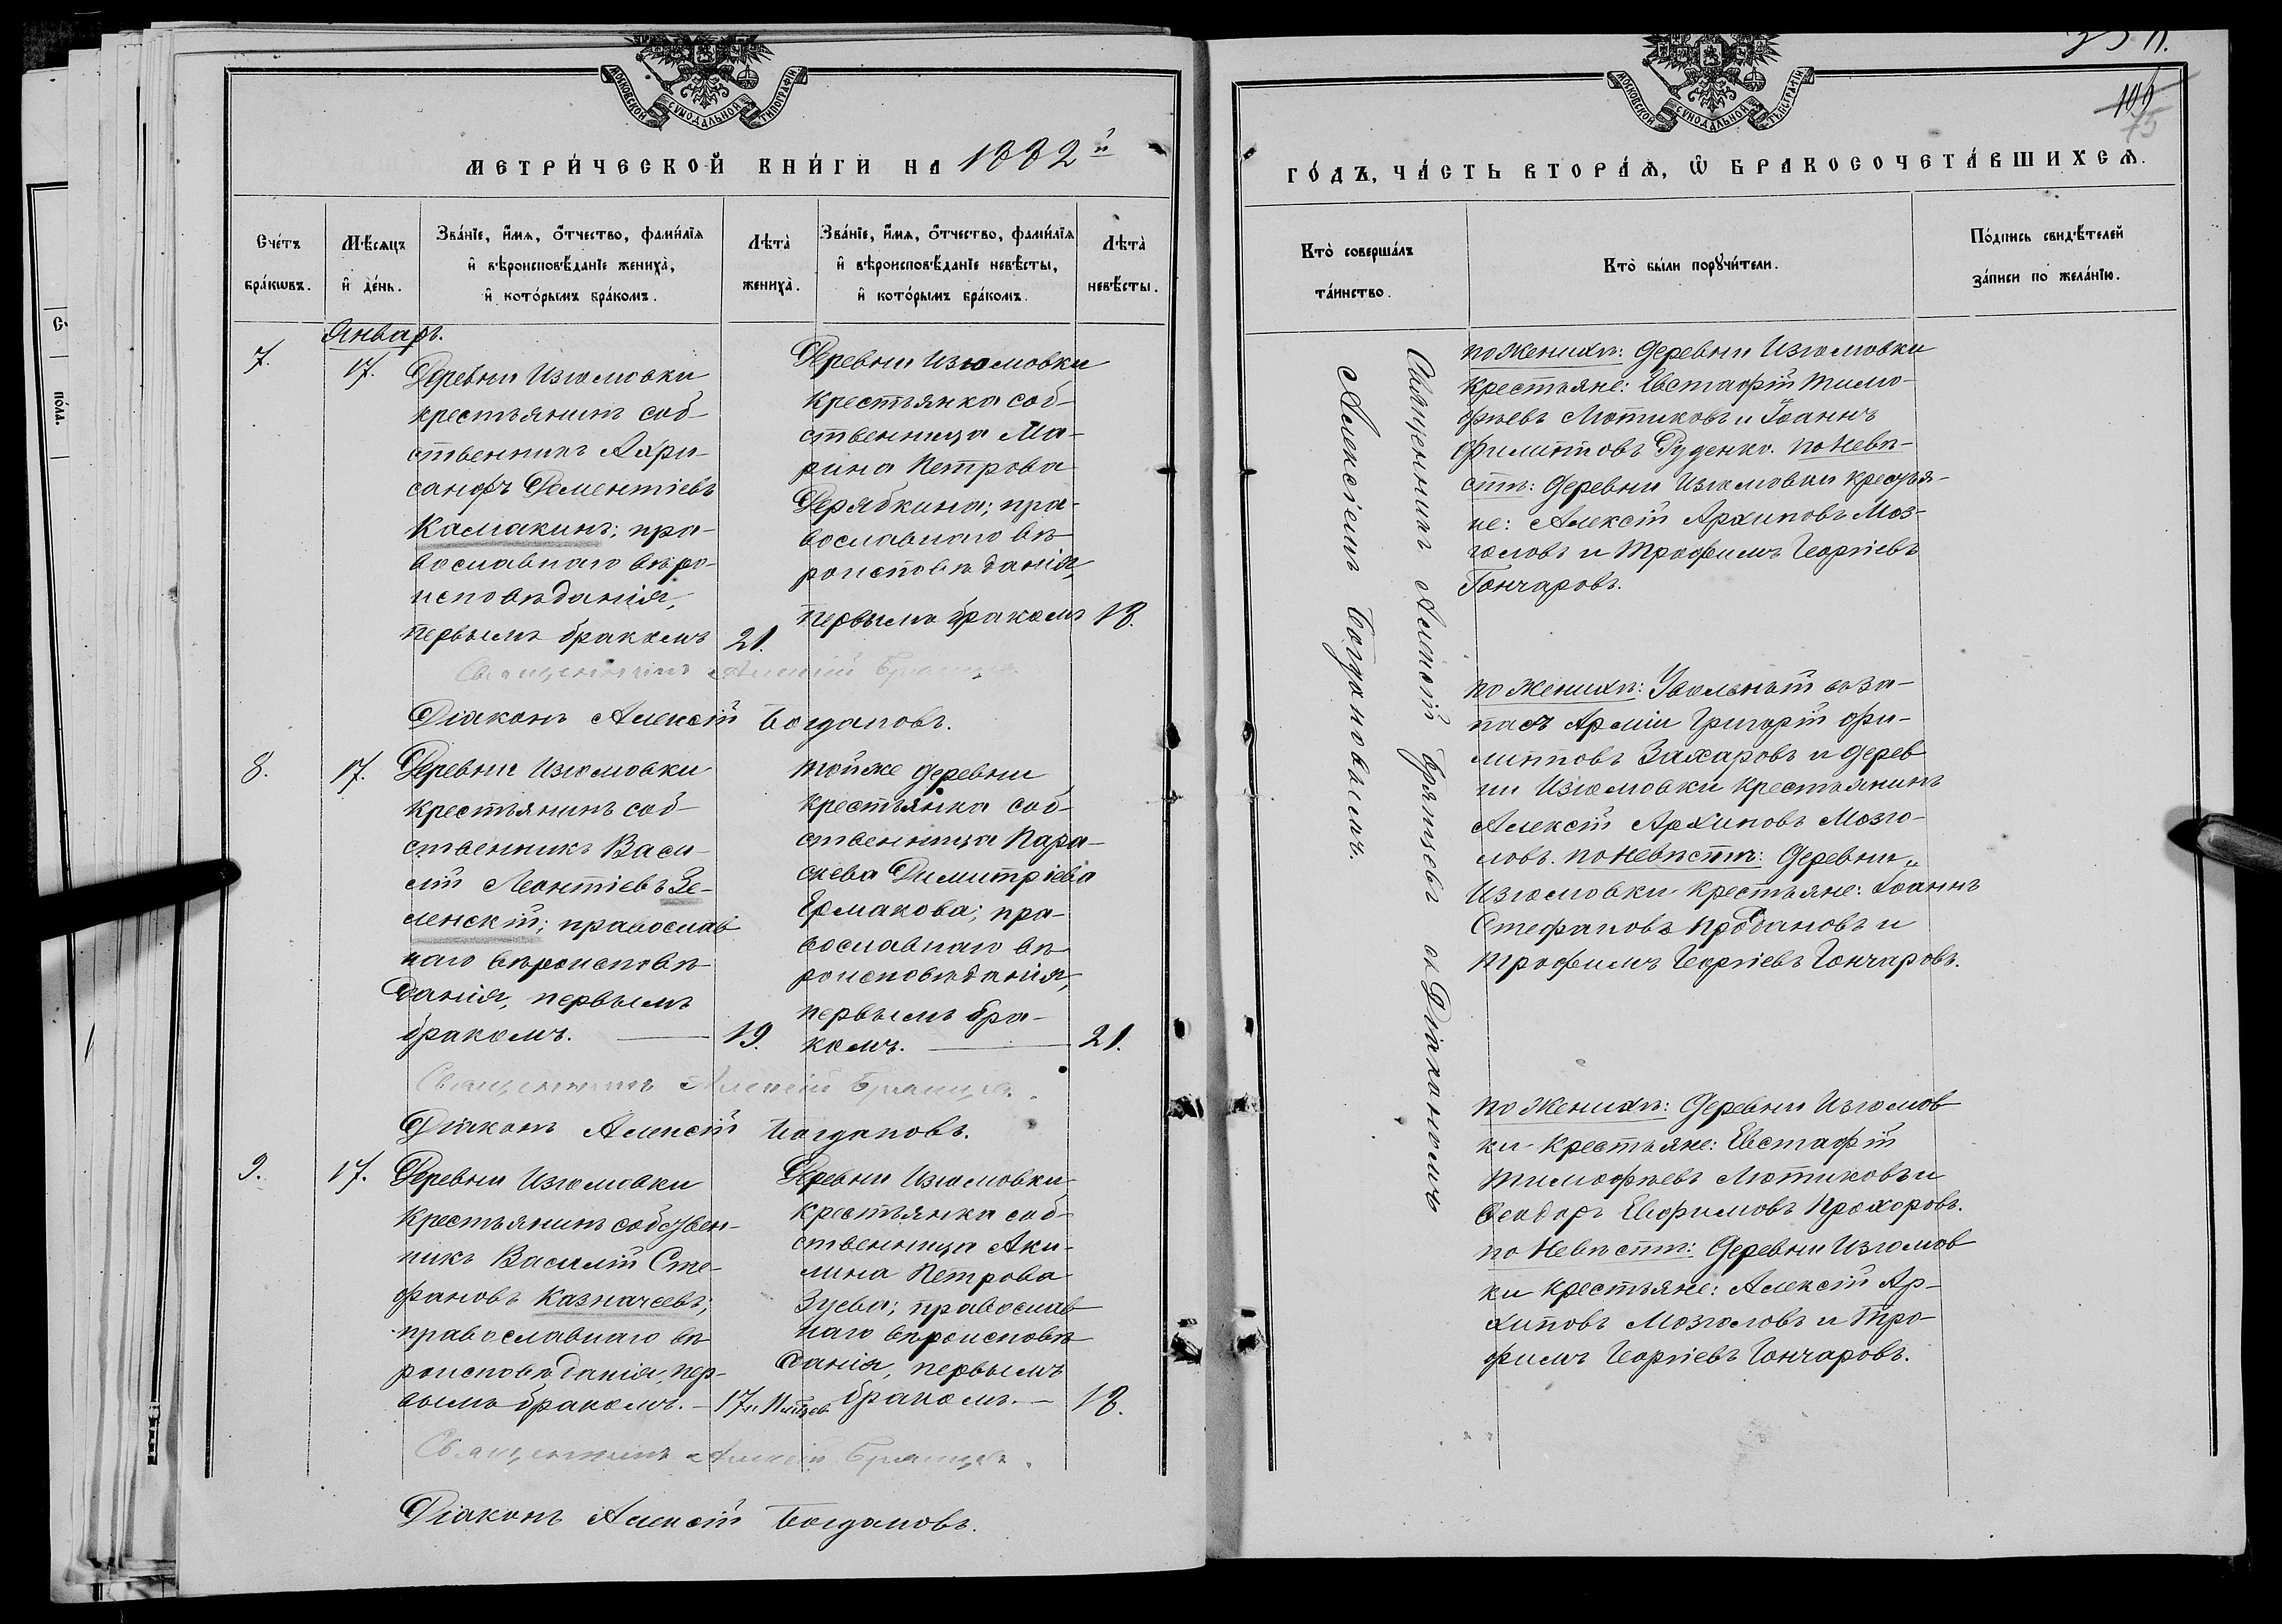 МОСКОВСКОЙ СѴНОДАЛЬНОЙ ТИПОГРАФІИ
МЕТРИ́ЧЕСКОЙ КНИ́ГИ НА 1882й
Сче́тъ бра́кѡвъ.
Мѣ́сяцъ и҆ де́нь.
Зва́нїе, и҆́мѧ, ѻ҆́тчество, фами́лїѧ и҆ вѣроисповѣ́данїе жениха̀, и҆ кото́рымъ бра́комъ.
Лѣта̀ жениха̀.
Зва́нїе, и҆́мѧ, ѻ҆́тчество, фами́лїѧ и҆ вѣроисповѣ́данїе невѣ́сты, и҆ кото́рымъ бра́комъ.
Лѣта̀ невѣ́сты.
Январь.
7.
17.
Деревни Изюмовки
крестьянинъ соб-
ственникъ Ахри-
санфъ Дементіевъ
Камакинъ; пра-
вославнаго вѣро-
исповѣданія,
первымъ бракомъ
21.
Деревни Изюмовки
крестьянка соб-
ственница Ма-
рина Петрова
Дерябкина; пра-
вославнаго вѣ-
роисповѣданія,
первымъ бракомъ
18.
Священникъ Алексій Брянцевъ
Діаконъ Алексій Богдановъ.
8.
17.
Деревни Изюмовки
крестьянинъ соб-
ственникъ Васи-
лій Леонтіевъ Зе-
ленскій; православ
наго вѣроисповѣ-
данія, первымъ
бракомъ.
19.
Тойже деревни
крестьянка соб-
ственница Пара-
скева Димитріева
Ермакова; пра-
вославнаго вѣ-
роисповѣданія,
первымъ бра-
комъ.
21.
Священникъ Алексій Брянцевъ.
Діаконъ Алексій Богдановъ.
9.
17.
Деревни Изюмовки
крестьянинъ собствен-
никъ Василій Сте-
фановъ Казначеевъ;
православнаго вѣ-
роисповѣданія, пер-
вымъ бракомъ.
17
Деревни Изюмовки
крестьянка соб-
ственница Аки-
лина Петрова
Зуева; православ
наго вѣроисповѣ
данія, первымъ
бракомъ.
18.
Священникъ Алексій Брянцевъ.
Діаконъ Алексій Богдановъ.
МОСКОВСКОЙ СѴНОДАЛЬНОЙ ТИПОГРАФІИ
75
ГО́ДЪ, ЧА́СТЬ ВТОРА́Ѧ, Ѡ҆ БРАКОСОЧЕТА́ВШИХСѦ.
Кто̀ соверша́лъ та́инство.
Кто̀ бы́ли порꙋчи́тели.
По́дпись свидѣ́телей за́писи по жела́нїю.
Священникъ Алексій Брянцевъ съ Діакономъ
Алексіемъ Богдановымъ.
по Женихѣ: деревни Изюмовки
крестьяне: Евстафій Тимо-
фѣевъ Лютиковъ и Іоаннъ
Филипповъ Руденко. по Невѣ-
стѣ: деревни Изюмовки крестья-
не: Алексій Архиповъ Моз-
головъ и Трофимъ Георгіевъ
Гончаровъ.
по Женихѣ: Уволеный въ за-
пасъ Арміи Григорій Фи-
липповъ Захаровъ и дерев
ни Изюмовки крестьянинъ
Алексій Архиповъ Мозго-
ловъ. по Невѣстѣ: деревни
Изюмовки крестьяне: Іоаннъ
Стефановъ Продановъ и
Трофимъ Георгіевъ Гончаровъ.
по Женихѣ: деревни Изюмов
ки крестьяне: Евстафій
Тимофѣевъ Лютиковъ и
Ѳеодоръ Евфимовъ Прохоровъ.
по Невѣстѣ: деревни Изюмов
ки крестьяне: Алексій Ар-
хиповъ Мозголовъ и Тро-
фимъ Георгіевъ Гончаровъ.